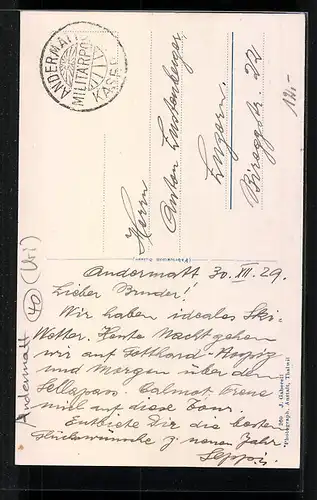 ANDERMATT
MILITÄRPOST
KASERNE
12.-
Herrn
Anton Lustenberger
Luzern
Bireggstr. 22
Andermatt 30. XII. 29.
Lieber Bruder!
Wir haben ideales Ski-
Wetter. Heute Nacht gehen
wir auf Gotthard-Hospiz
und Morgen über den
Sellapass. Calmot
mich auf diese Tour.
Entbiete Dir die besten
Glückwünsche z. neuen Jahr
Seppi.
Andermatt (40) (Uri)
269 J. Gaberell
Photograph. Anstalt, Thalwil